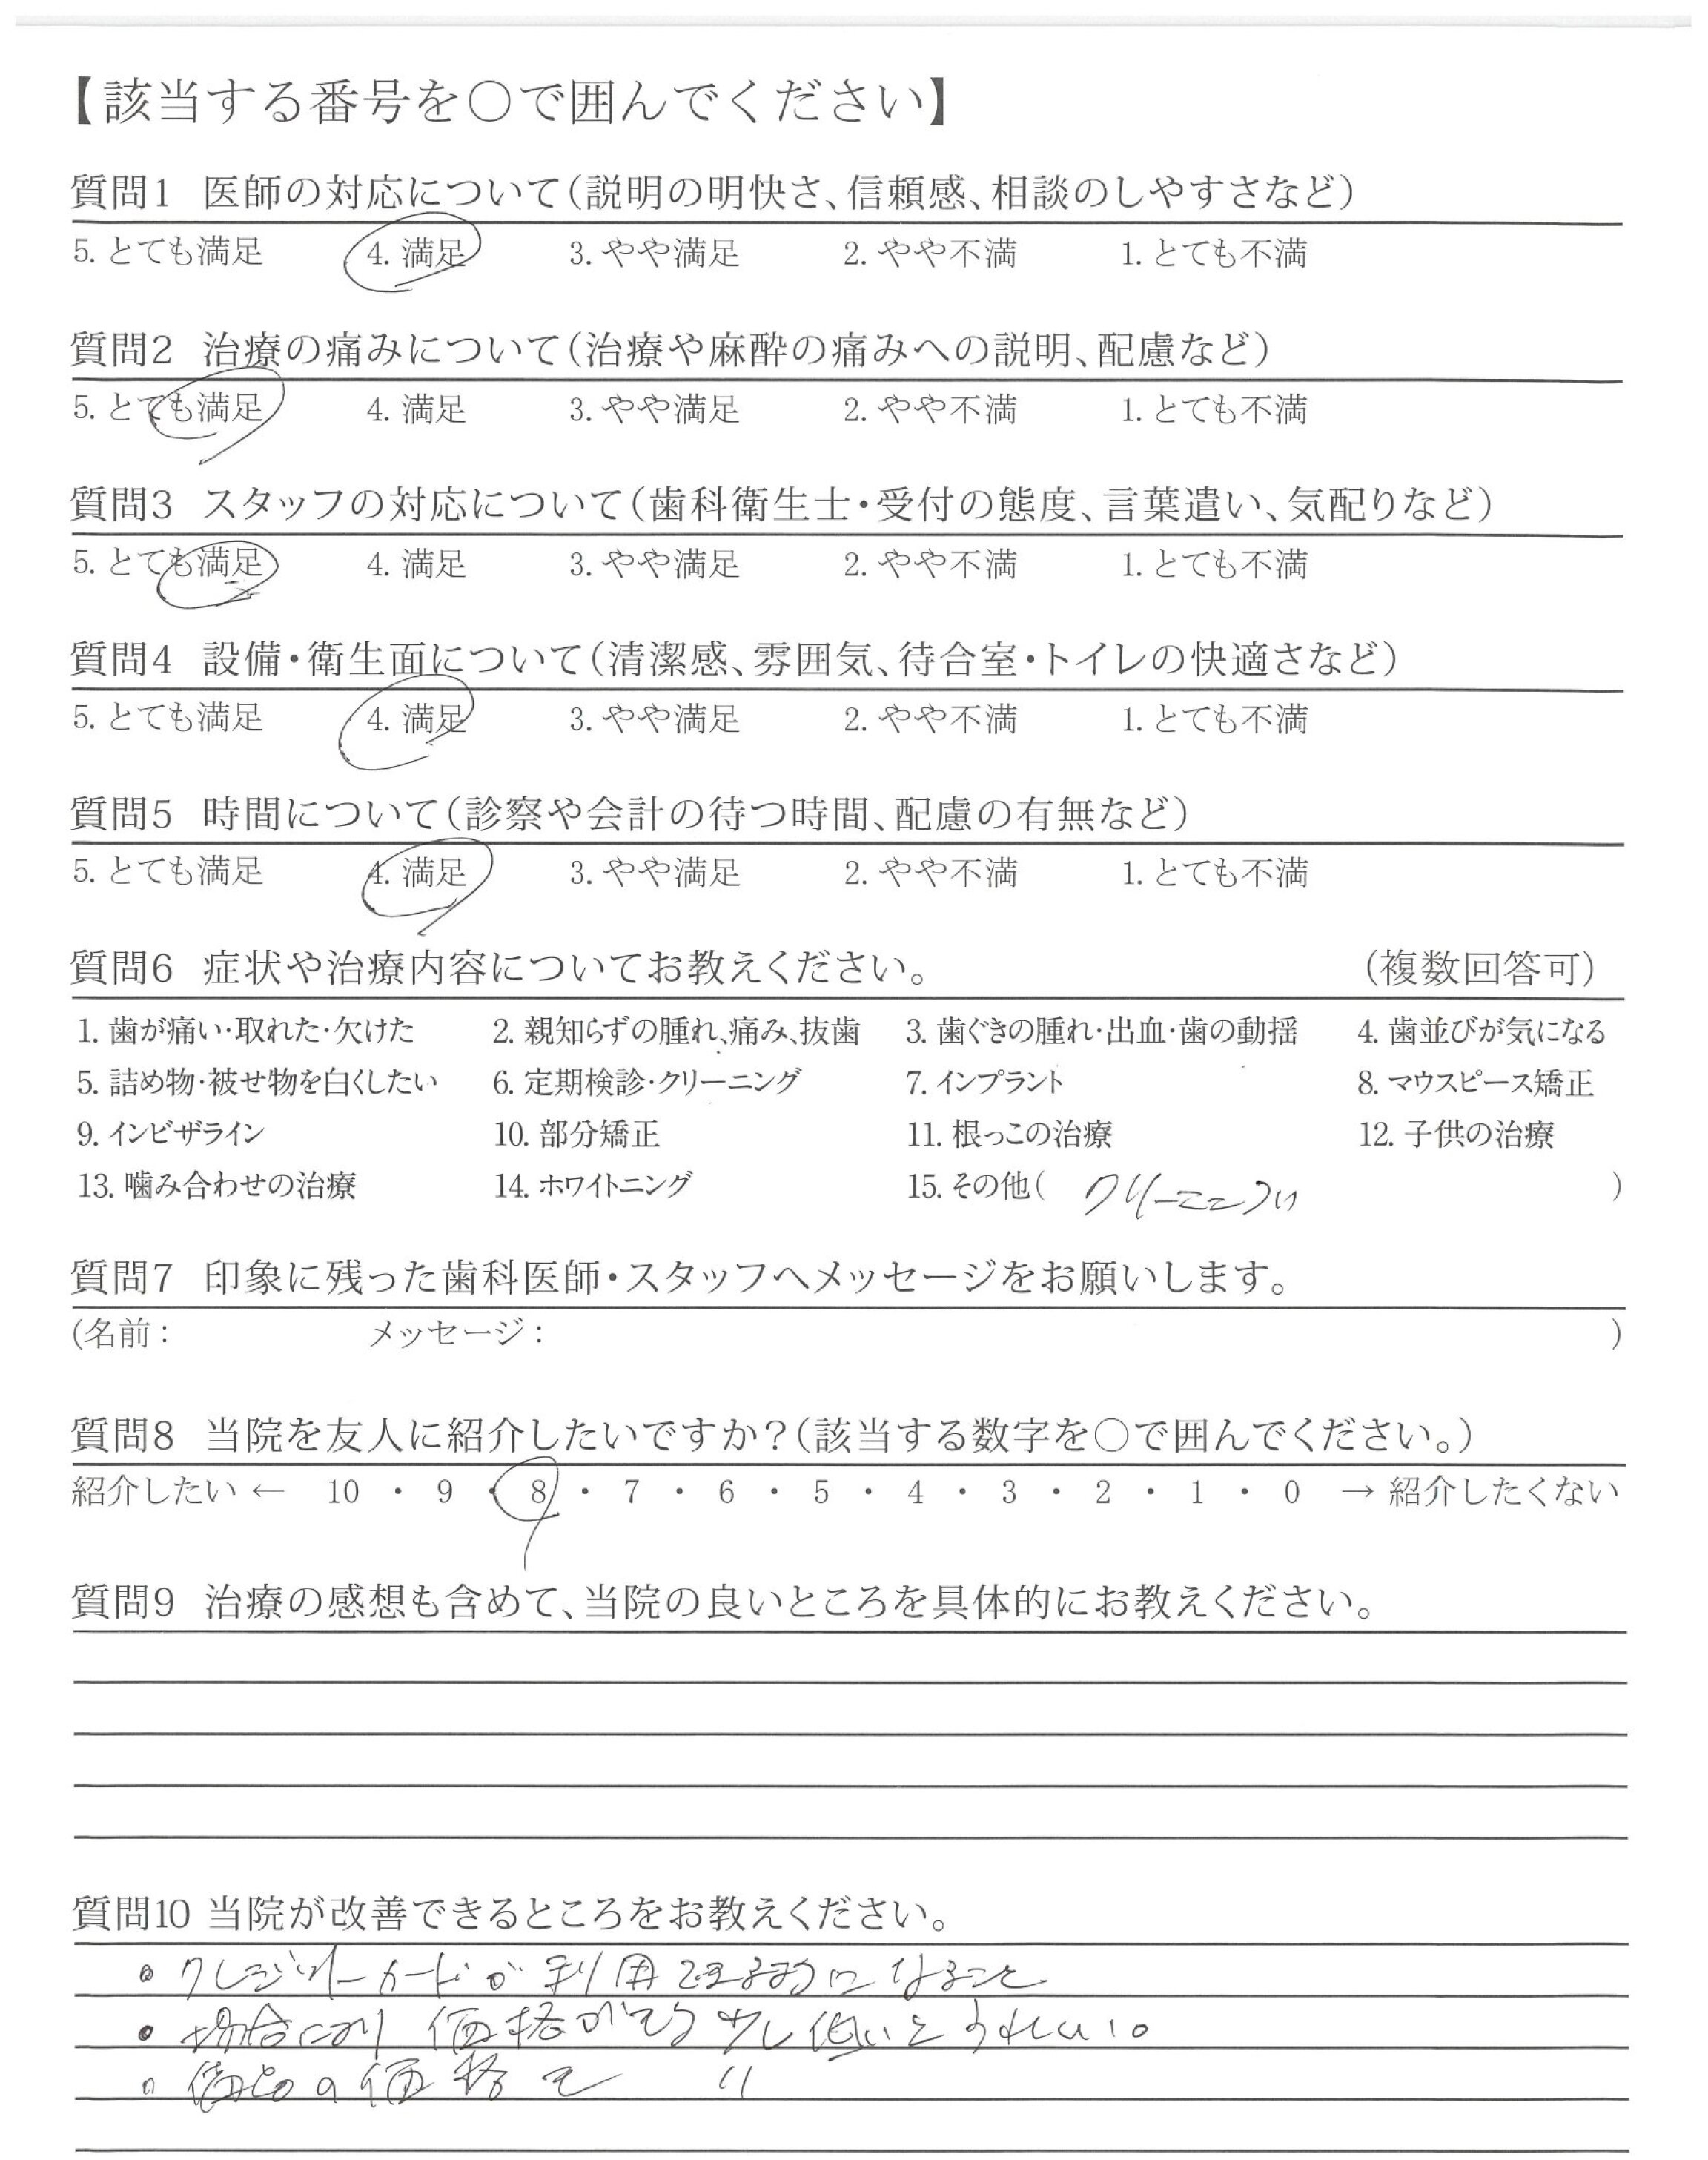 【該当する番号を○で囲んでください】
質問1 医師の対応について(説明の明快さ、信頼感、相談のしやすさなど)
5. とても満足 4. 満足 3. やや満足 2. やや不満 1. とても不満
質問2 治療の痛みについて(治療や麻酔の痛みへの説明、配慮など)
5. とても満足 4. 満足 3. やや満足 2. やや不満 1. とても不満
質問3 スタッフの対応について(歯科衛生士・受付の態度、言葉遣い、気配りなど)
5. とても満足 4. 満足 3. やや満足 2. やや不満 1. とても不満
質問4 設備・衛生面について(清潔感、雰囲気、待合室・トイレの快適さなど)
5. とても満足 4. 満足 3. やや満足 2. やや不満 1. とても不満
質問5 時間について(診察や会計の待つ時間、配慮の有無など)
5. とても満足 4. 満足 3. やや満足 2. やや不満 1. とても不満
質問6 症状や治療内容についてお教えください。 (複数回答可)
1. 歯が痛い・取れた・欠けた 2. 親知らずの腫れ、痛み、抜歯 3. 歯ぐきの腫れ・出血・歯の動揺 4. 歯並びが気になる
5. 詰め物・被せ物を白くしたい 6. 定期検診・クリーニング 7. インプラント 8. マウスピース矯正
9. インビザライン 10. 部分矯正 11. 根っこの治療 12. 子供の治療
13. 噛み合わせの治療 14. ホワイトニング 15. その他( クリーニング )
質問7 印象に残った歯科医師・スタッフへメッセージをお願いします。
(名前: メッセージ: )
質問8 当院を友人に紹介したいですか?(該当する数字を○で囲んでください。)
紹介したい ← 10 ・ 9 ・ 8 ・ 7 ・ 6 ・ 5 ・ 4 ・ 3 ・ 2 ・ 1 ・ 0 → 紹介したくない
質問9 治療の感想も含めて、当院の良いところを具体的にお教えください。
質問10 当院が改善できるところをお教えください。
・クレジットカードが利用できるようになること
・場合により価格がもう少し低いとうれしい。
・備品の価格も 〃